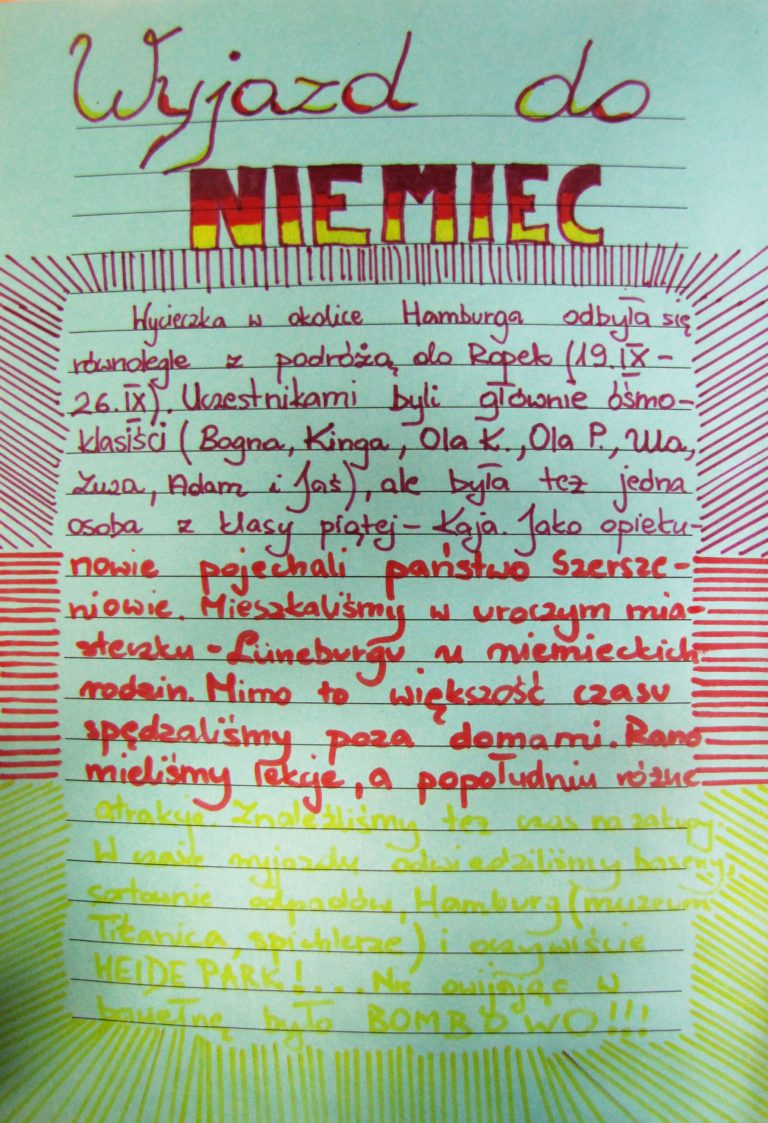 Wyjazd do
NIEMIEC
Wycieczka w okolice Hamburga odbyła się
równolegle z podróżą do Ropek (19.IX-
26.IX). Uczestnikami byli głównie ósmo-
klasiści (Bogna, Kinga, Ola K., Ola P., Ula,
Zuza, Adam i Jaś), ale była też jedna
osoba z klasy piątej - Kaja. Jako opieku-
nowie pojechali państwo Szersze-
niowie. Mieszkaliśmy w uroczym mia-
steczku - Lüneburgu u niemieckich
rodzin. Mimo to większość czasu
spędzaliśmy poza domami. Rano
mieliśmy lekcje, a popołudniu różne
atrakcje. Znaleźliśmy też czas na zakupy.
W czasie wyjazdu odwiedziliśmy baseny,
sortownie odpadów, Hamburg (muzeum
Titanica, spichlerze) i oczywiście
HEIDE PARK!... Nie owijając w
bawełnę było BOMBOWO!!!